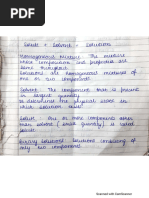 Solute + Solvent = Solutions
Homogeneous Mixture: The mixture
whose composition and properties are
same throughout.
Solutions are homogeneous mixtures of
two or more components.
Solvent: The component that is present
in largest quantity
It determines the physical state in
which solution exist.
Solute: One or more components other
than solvent (small quantity) is called
solute.
Binary Solutions: Solutions consisting of
only two components.
Scanned with CamScanner